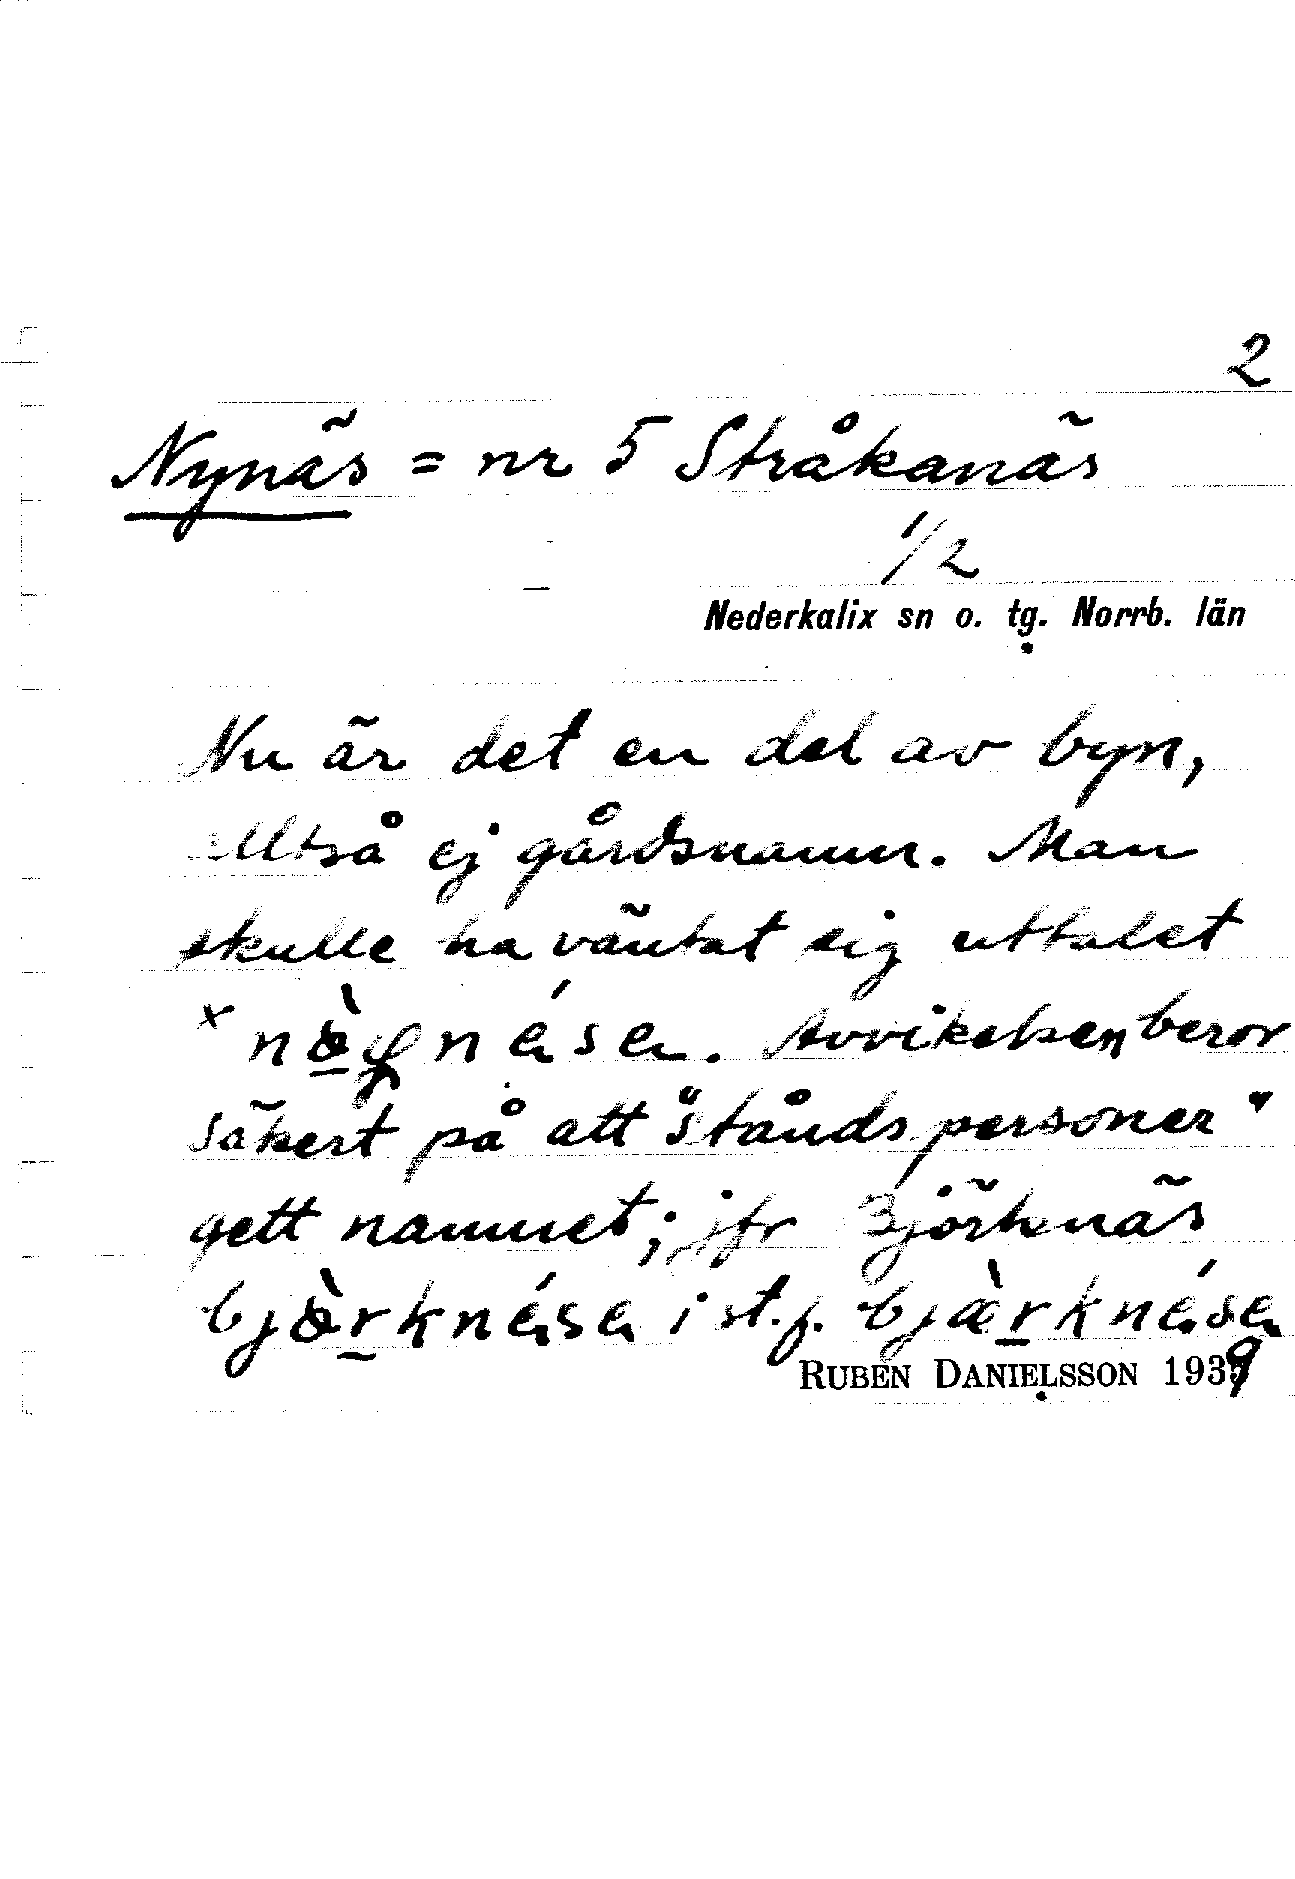 2
Nynäs = nr 5 Stråkanäs
1/2
Nederkalix sn o. tg. Norrb. län
Nu är det en del av byn,
alltså ej gårdsnamn. Man
skulle ha väntat sig uttalet
Avvikelsen beror
säkert på att "ståndspersoner"
gett namnet; jfr Björknäs
bjὸrknése i st. f. bjæ̀rknése
RUBEN DANIELSSON 1939